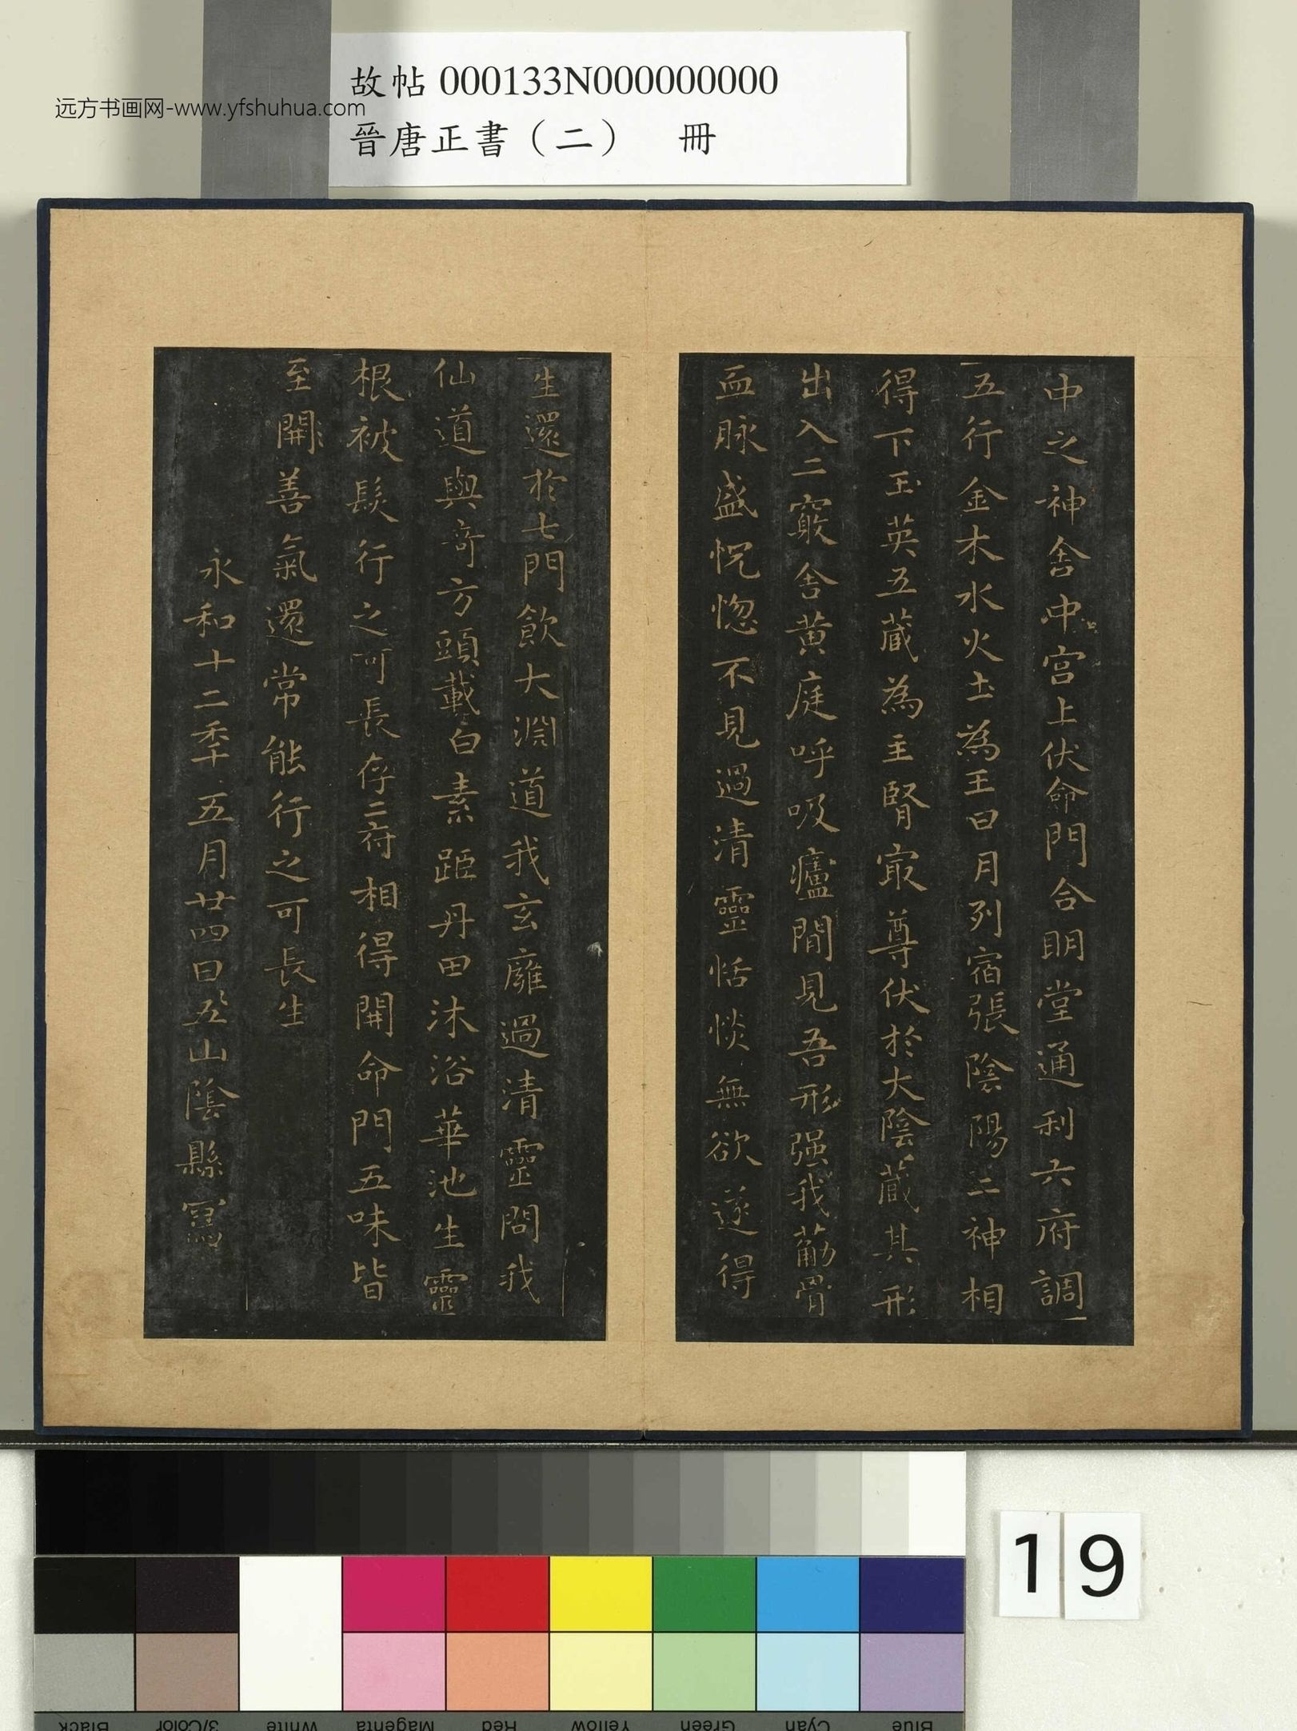 故帖 000133N000000000
远方书画网-www.yfshuhua.com
晉唐正書（二） 冊
中之神舍中宮上伏命門合明堂通利六府調
五行金木水火土為王日月列宿張陰陽二神相
得下玉英五藏為主腎㝡尊伏於大陰藏其形
出入二竅舍黃庭呼吸廬間見吾形强我筋骨
血脉盛怳惚不見過清靈恬惔無欲遂得
生還於七門飲大淵道我玄廱過清靈問我
仙道與奇方頭載白素距丹田沐浴華池生靈
根被髮行之可長存二府相得開命門五味皆
至開善氣還常能行之可長生
永和十二年五月廿四日五山陰縣寫
19
Black 3/Color White Magenta Red Yellow Green Cyan Blue